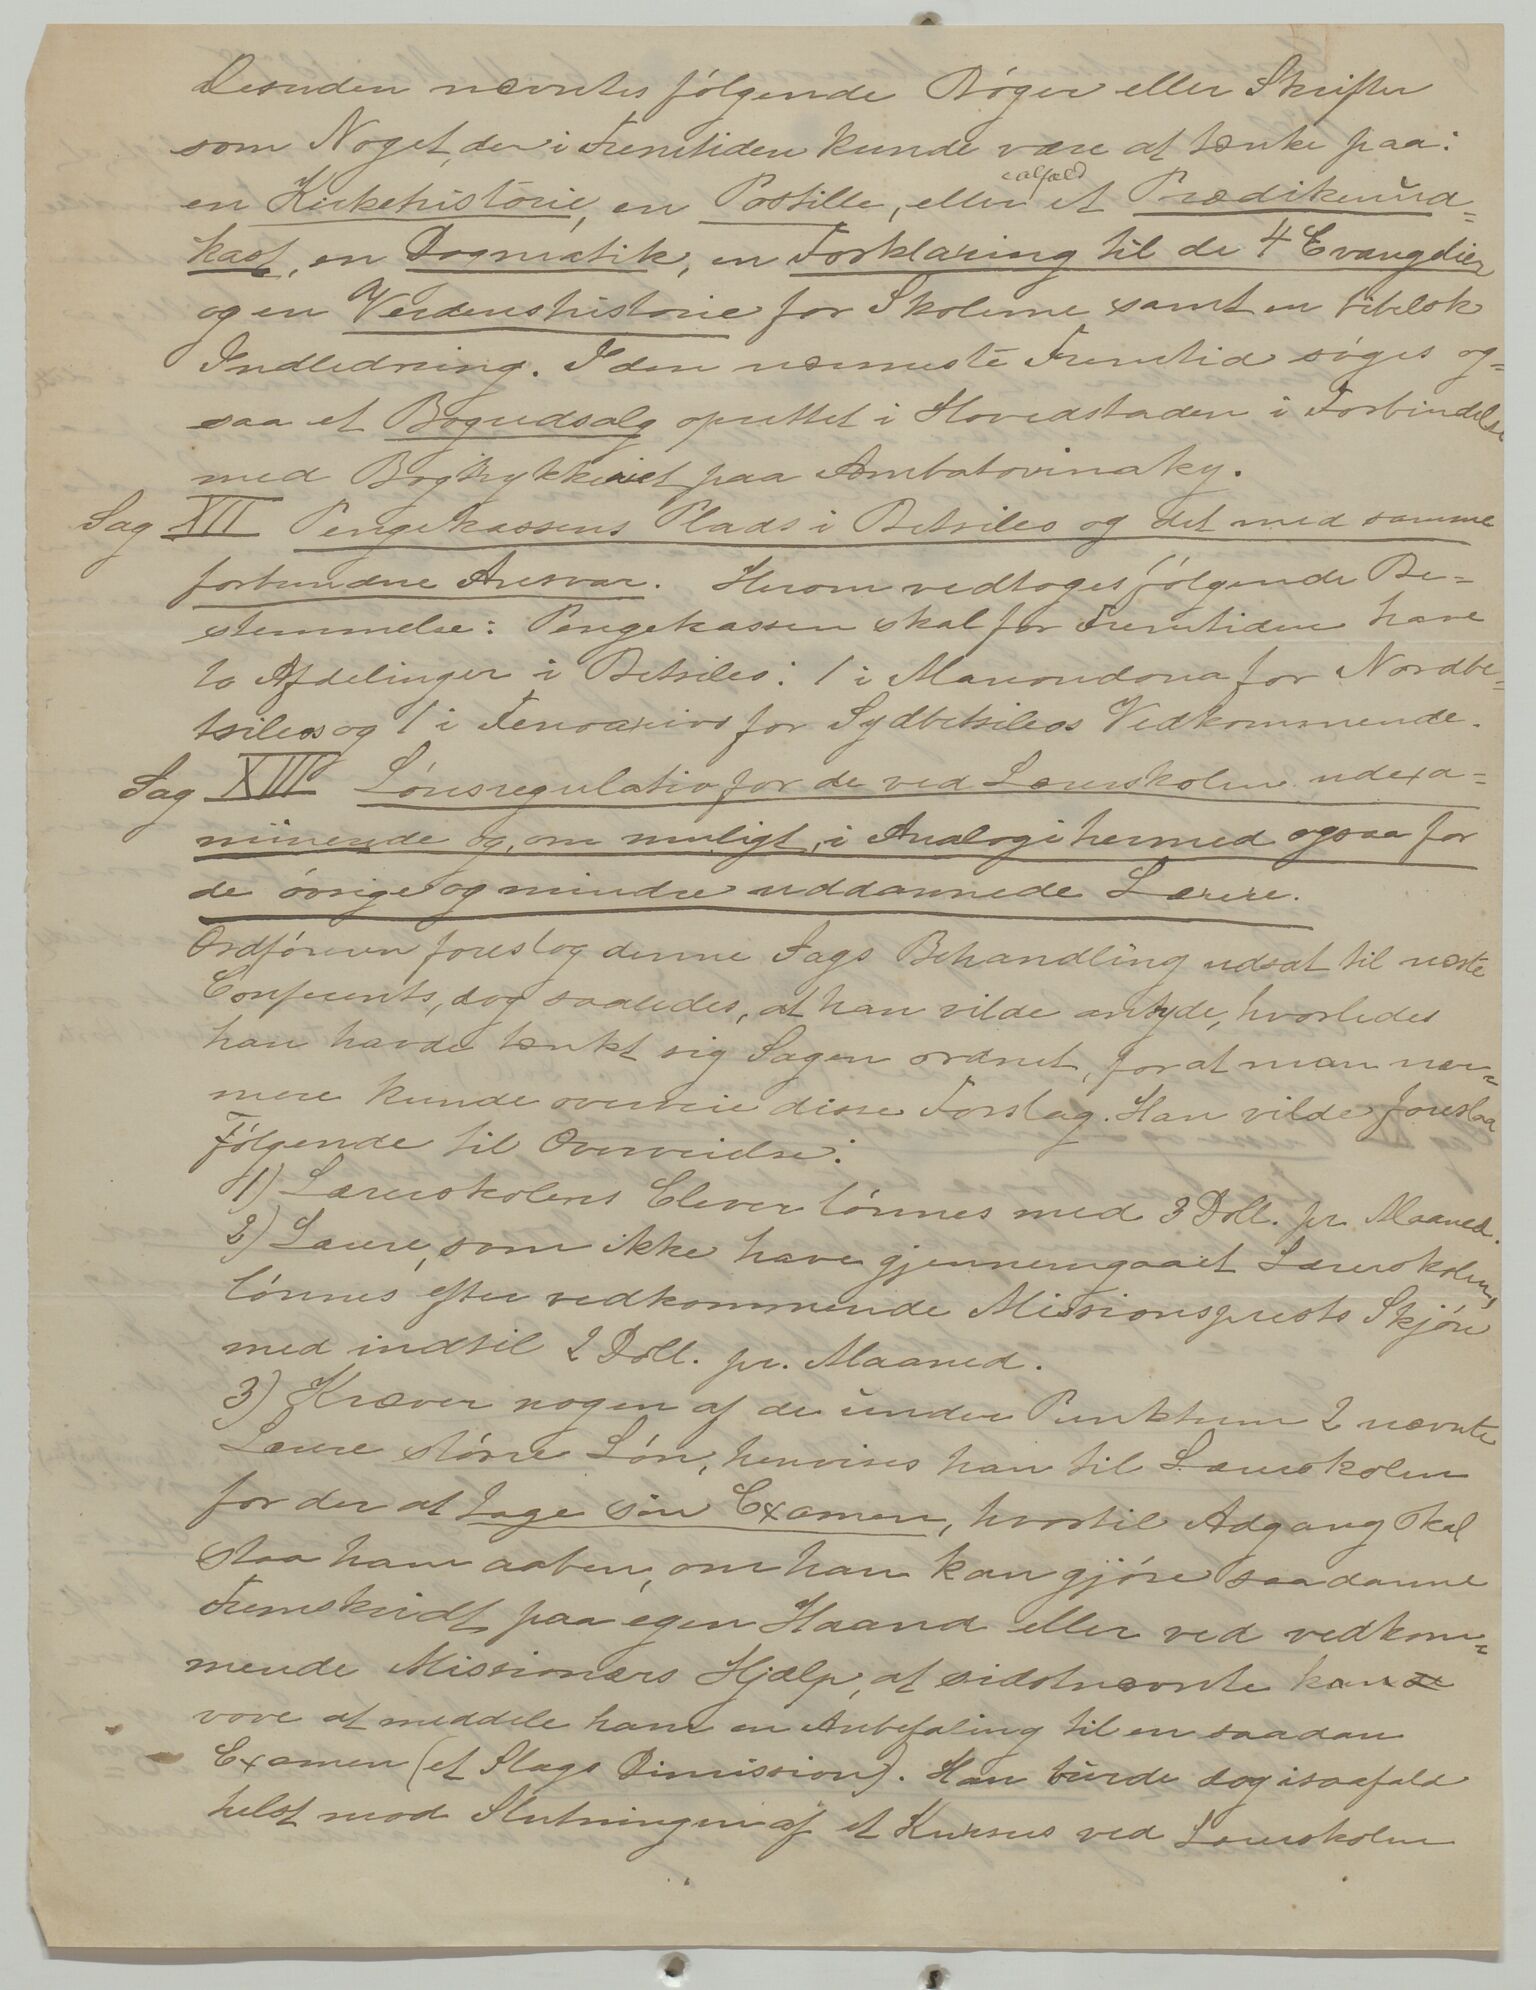 Desuden nævntes følgende Bøger eller Skrifter
som Noget, der i Fremtiden kunde være at tænke paa:
en Kirkehistorie, en Postille, eller ialfald et Prædikenud=
kast, en Dogmatik, en Forklaring til de 4 Evangelier
og en Verdenshistorie for Skolerne samt en bibelsk
Indledning. I den nærmeste Fremtid søges og=
saa et Bogudsalg oprettet i Hovedstaden i Forbindelse
med Bogtrykkeriet paa Ambatovinaky.
Sag XII Pengekassens Plads i Betsileo og det med samme
forbundne Ansvar. Herom vedtoges følgende Be=
stemmelse: Pengekassen skal for Fremtiden have
to Afdelinger i Betsileo: 1 i Masinondona for Nordbe=
tsileos og 1 i Fenoarivo for Sydbetsileos Vedkommende.
Sag XIII Lønsregulativ for de ved Lærerskolen udexa=
minerede og, om muligt, i Analogi hermed ogsaa for
de øvrige og mindre uddannede Lærere.
Ordføreren foreslog denne Sags Behandling udsat til næste
Conferents, dog saaledes, at han vilde antyde, hvorledes
han havde tænkt sig Sagen ordnet, for at man nær=
mere kunde overveie disse Forslag. Han vilde foreslaa
Følgende til Overveielse:
1) Lærerskolens Elever lønnes med 3 Doll. pr. Maaned.
2) Lærere, som ikke have gjennemgaaet Lærerskolen,
lønnes efter vedkommende Missionsprests Skjøn
med indtil 2 Doll. pr. Maaned.
3) Kræver nogen af de under Punktum 2 nævnte
Lærere større Løn, henvises han til Lærerskolen
for der at tage sin Examen, hvortil Adgang skal
staa ham aaben, om han kan gjøre saadanne
Fremskridt paa egen Haand eller ved vedkom=
mende Missionærs Hjælp, at sidstnævnte kan
vove at meddele ham en Anbefaling til en saadan
Examen (et Slags Dimission). Han burde dog isaafald
helst mod Slutningen af et Kursus ved Lærerskolen